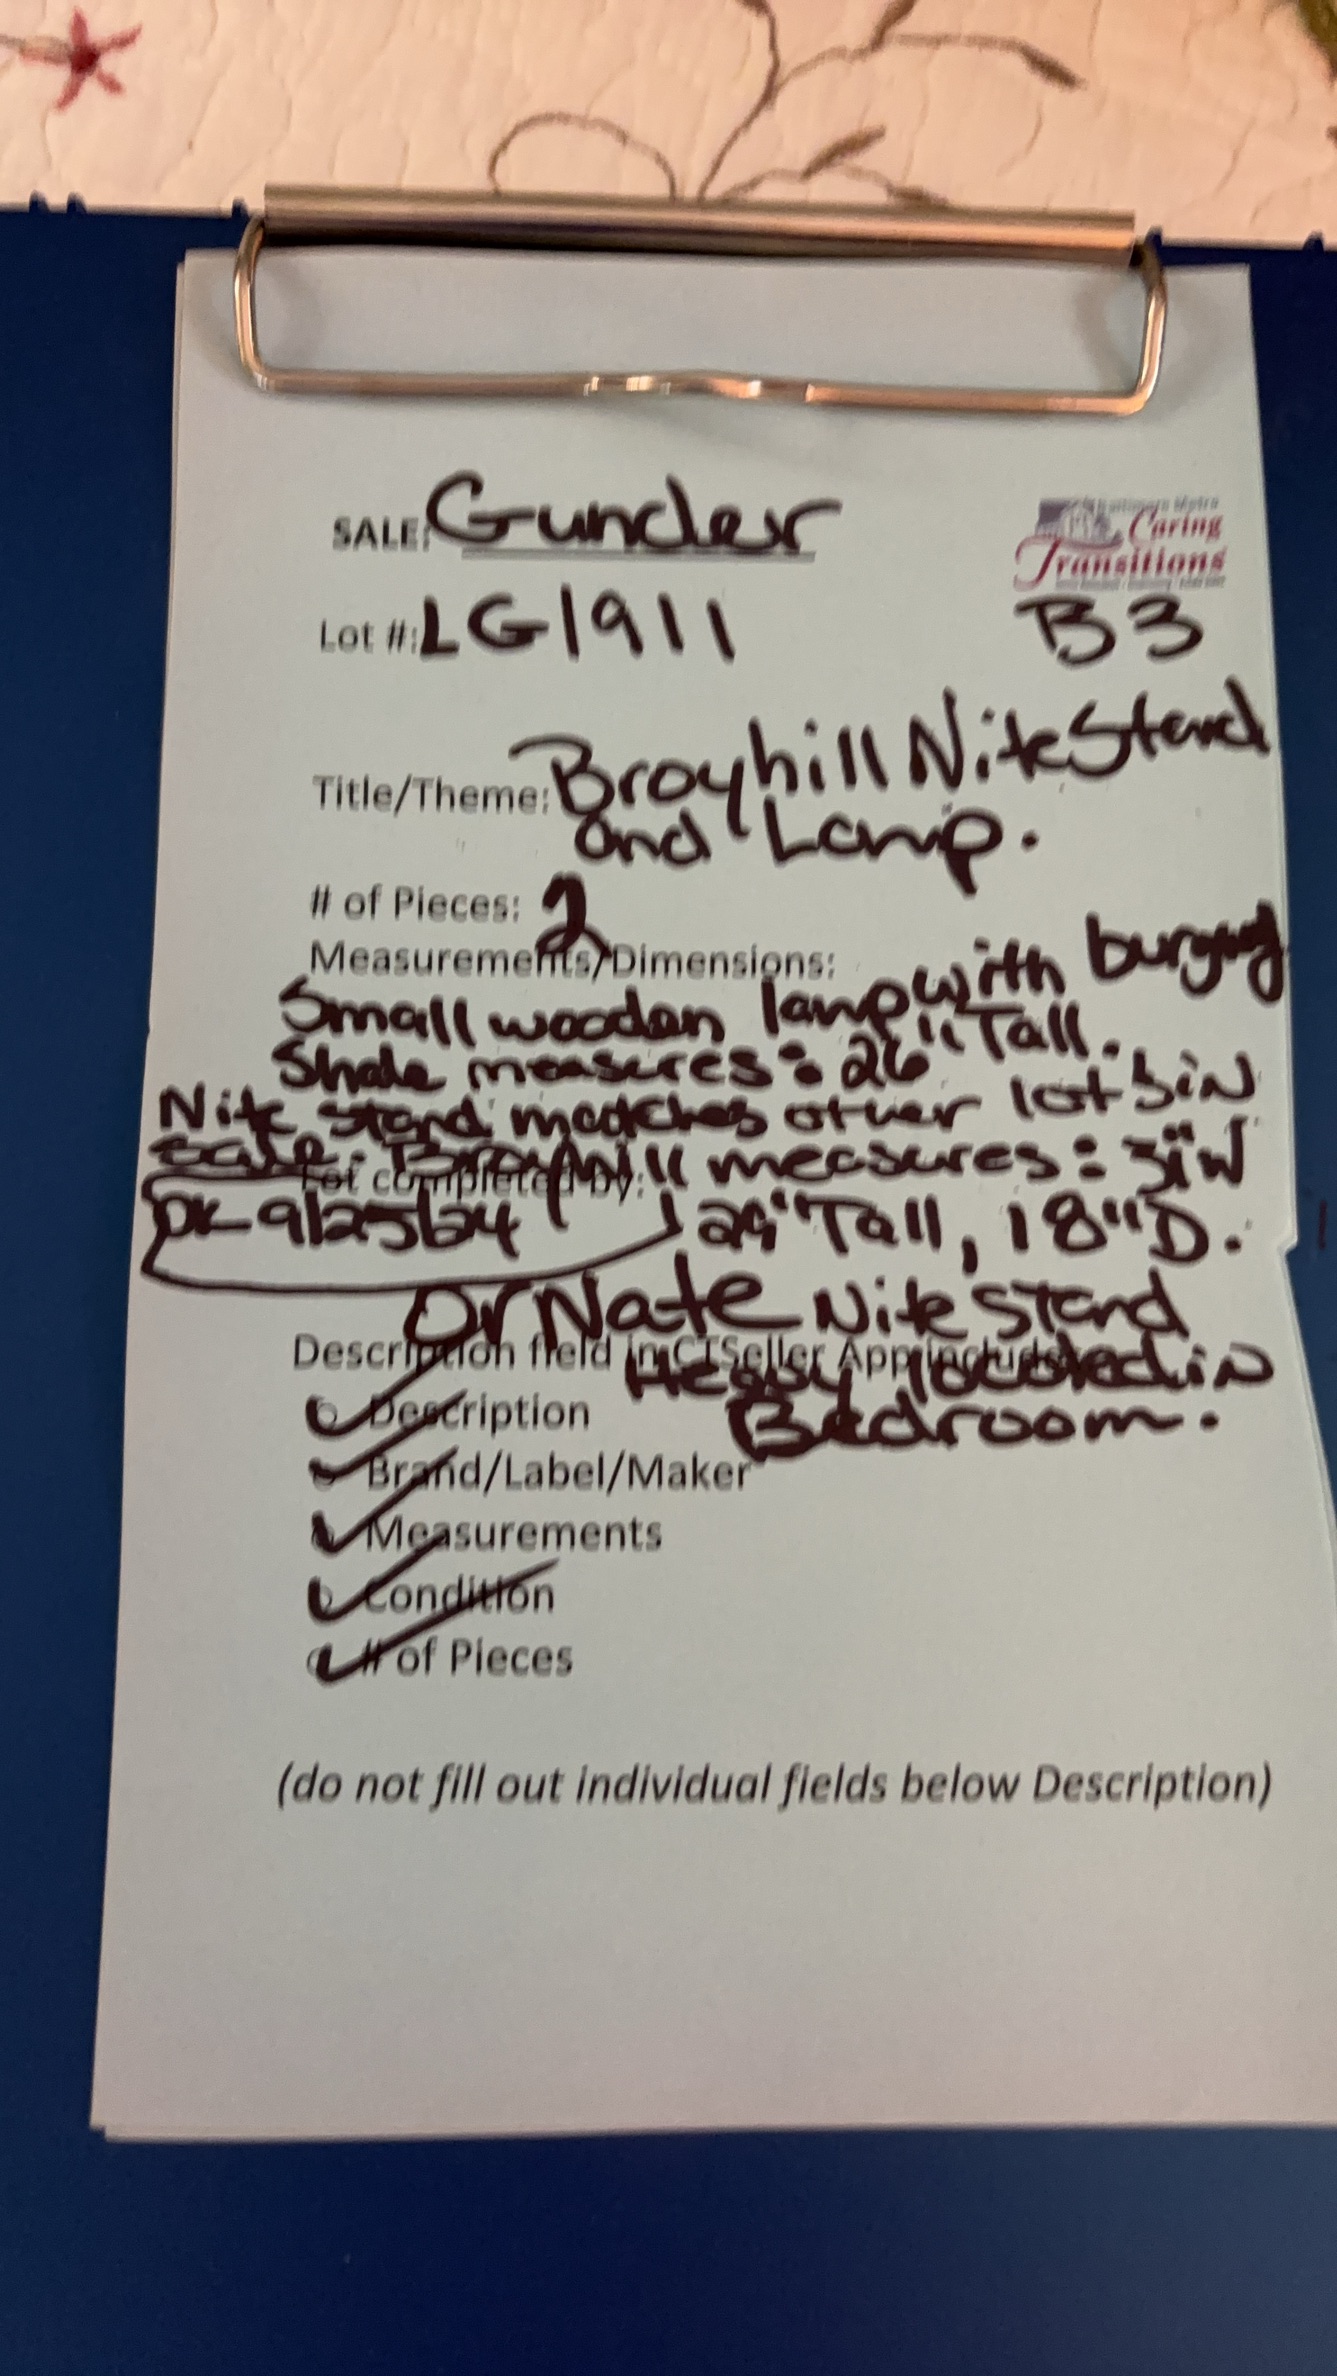 SALE: Gunder
Caring
Transitions
Lot #: LG1911 B3
Title/Theme: Broyhill Nite Stand
and Lamp.
# of Pieces: 2
Measurements/Dimensions:
Small wooden lamp with
Shade measures: 26" Tall.
Nite stand matches other lots in
sale. Broyhill measures: W
Lot completed by:
DK 9/25/24 Tall, 18"D.
OrNate Nite stand
Description field in CTSeller App includes:
Heavy located in
Description
Bedroom.
Brand/Label/Maker
Measurements
Condition
# of Pieces
(do not fill out individual fields below Description)